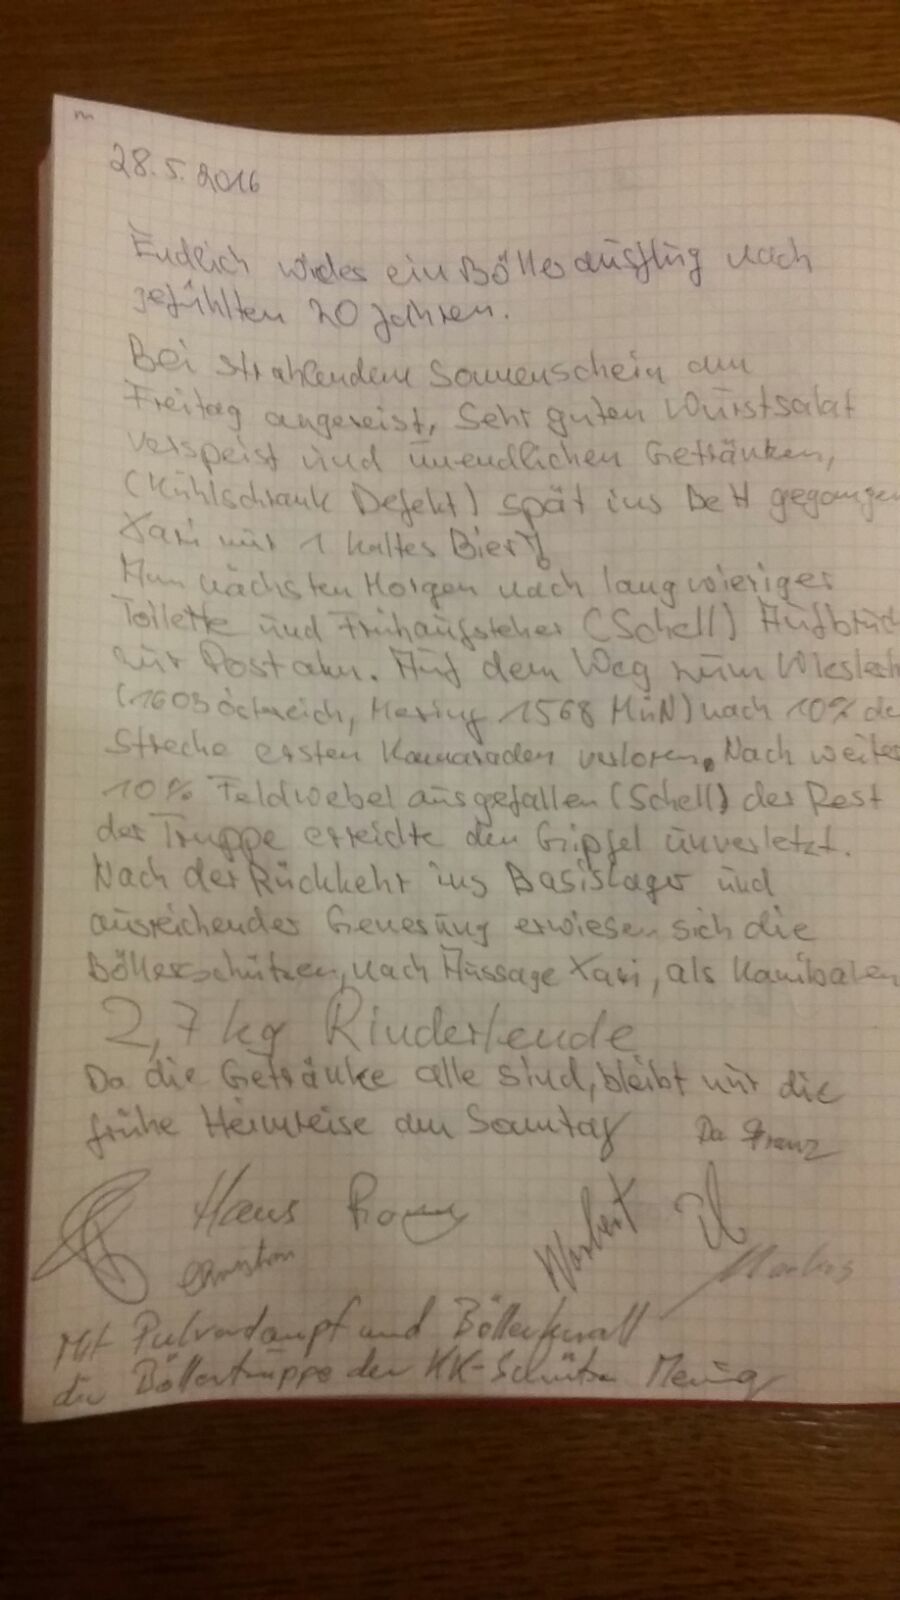 28.5.2016
Endlich wieder ein Böllerausflug nach
gefühlten 20 Jahren.
Bei strahlendem Sonnenschein am
Freitag angereist, Sehr guten Wurstsalat
verspeist und unendlichen Getränken,
(Kühlschrank Defekt) spät ins Bett gegangen
Xari nur 1 kaltes Bier!
Am nächsten Morgen nach langwieriger
Toilette und Frühaufsteher (Schell) Aufbruch
zur Postalm. Auf dem Weg zum Wieslerh
(1603 Östreich, Mering 1568 MüN) nach 10% de
Strecke ersten Kamaraden verloren. Nach weiter
10% Feldwebel ausgefallen (Schell) der Rest
der Truppe erreichte den Gipfel unverletzt.
Nach der Rückkehr ins Basislager und
ausreichender Genesung erwiesen sich die
Böllerschützen, nach Aussage Xari, als Kanibalen
2,7 kg Rinderlende
Da die Getränke alle sind, bleibt nur die
frühe Heimreise am Sonntag Da Franz
Hans
Christian Norbert Markus
Mit Pulverdampf und Böllerknall
die Böllertruppe der KK-Schützen Mering